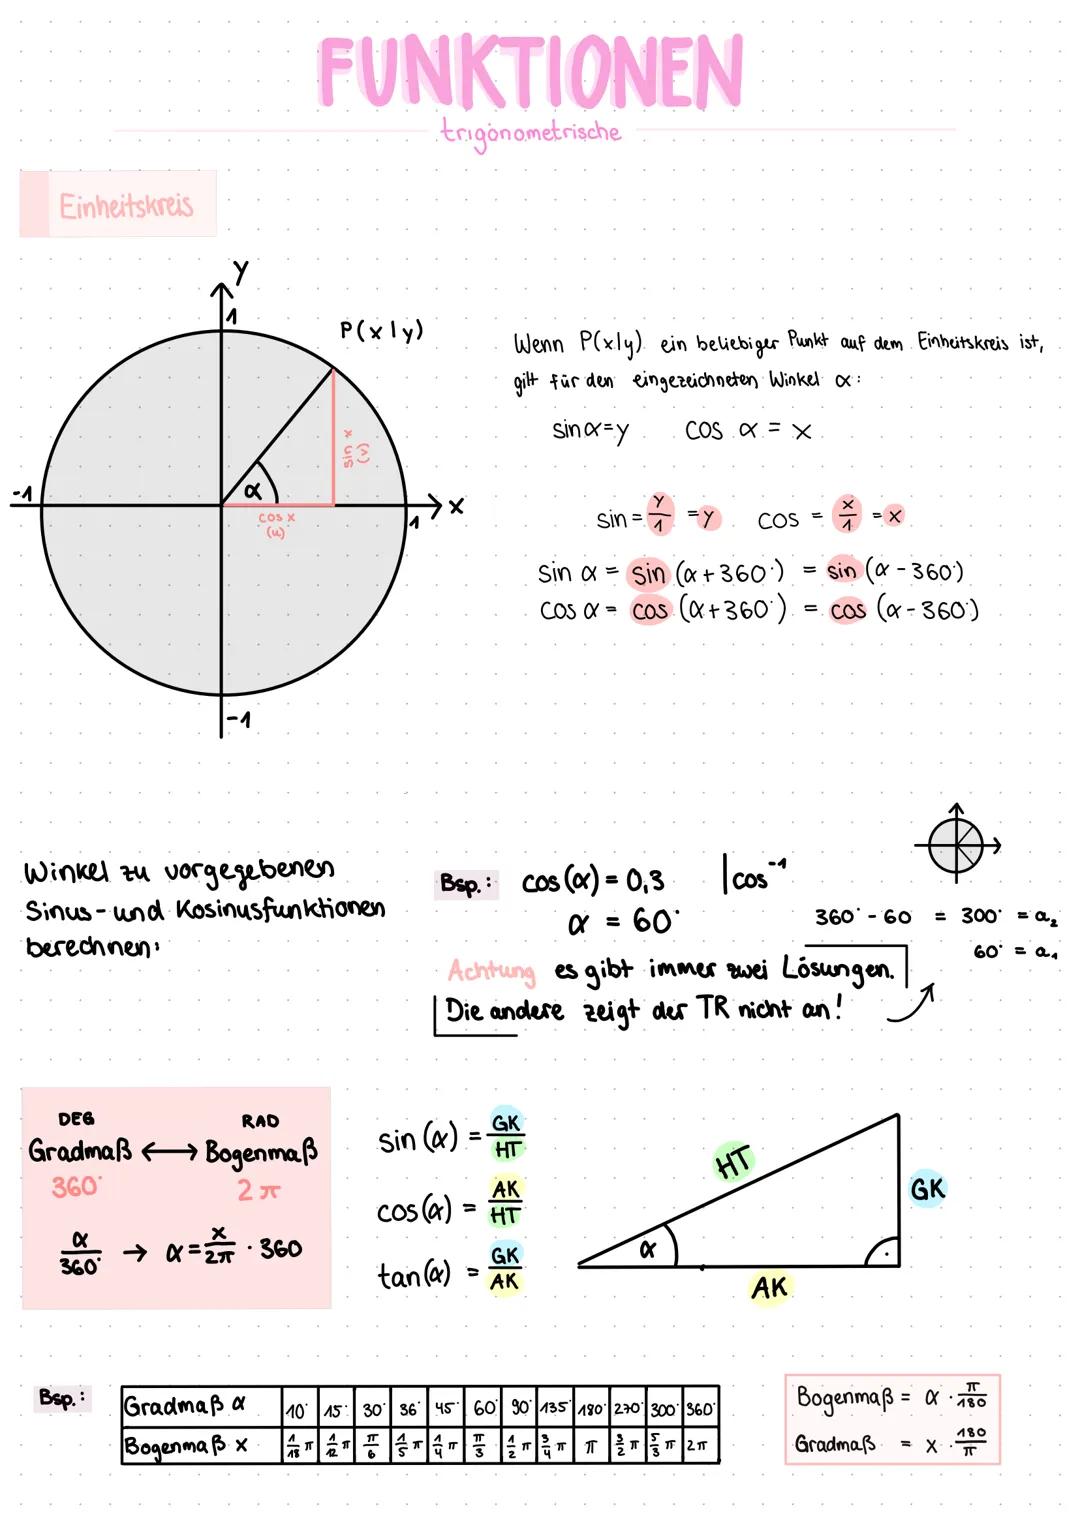 FUNKTIONEN
trigonometrische
Einheitskreis
y
1
P(x|y)
-1
α
sin x
(v)
cos x
(u)
1
x
-1
Wenn P(x|y) ein beliebiger Punkt auf dem Einheitskreis ist,
gilt für den eingezeichneten Winkel α:
sin α = y cos α = x
sin = y/1 = y cos = x/1 = x
sin α = sin (α + 360°) = sin (α - 360°)
cos α = cos (α + 360°) = cos (α - 360°)
Winkel zu vorgegebenen
Sinus- und Kosinusfunktionen
berechnen:
Bsp.: cos (α) = 0,3 | cos⁻¹
α = 60°
360° - 60 = 300° = α₂
60° = α₁
Achtung es gibt immer zwei Lösungen.
Die andere zeigt der TR nicht an!
DEG RAD
Gradmaß ⟷ Bogenmaß
360° 2π
α/360° → α = x/2π · 360
sin (α) = GK/HT
cos (α) = AK/HT
tan (α) = GK/AK
HT
GK
α
AK
Bsp.:
Gradmaß α 10° 15° 30° 36° 45° 60° 90° 135° 180° 270° 300° 360°
Bogenmaß x 1/18 π 1/12 π π/6 1/5 π 1/4 π π/3 1/2 π 3/4 π π 3/2 π 5/3 π 2π
Bogenmaß = α · π/180
Gradmaß = x · 180/π